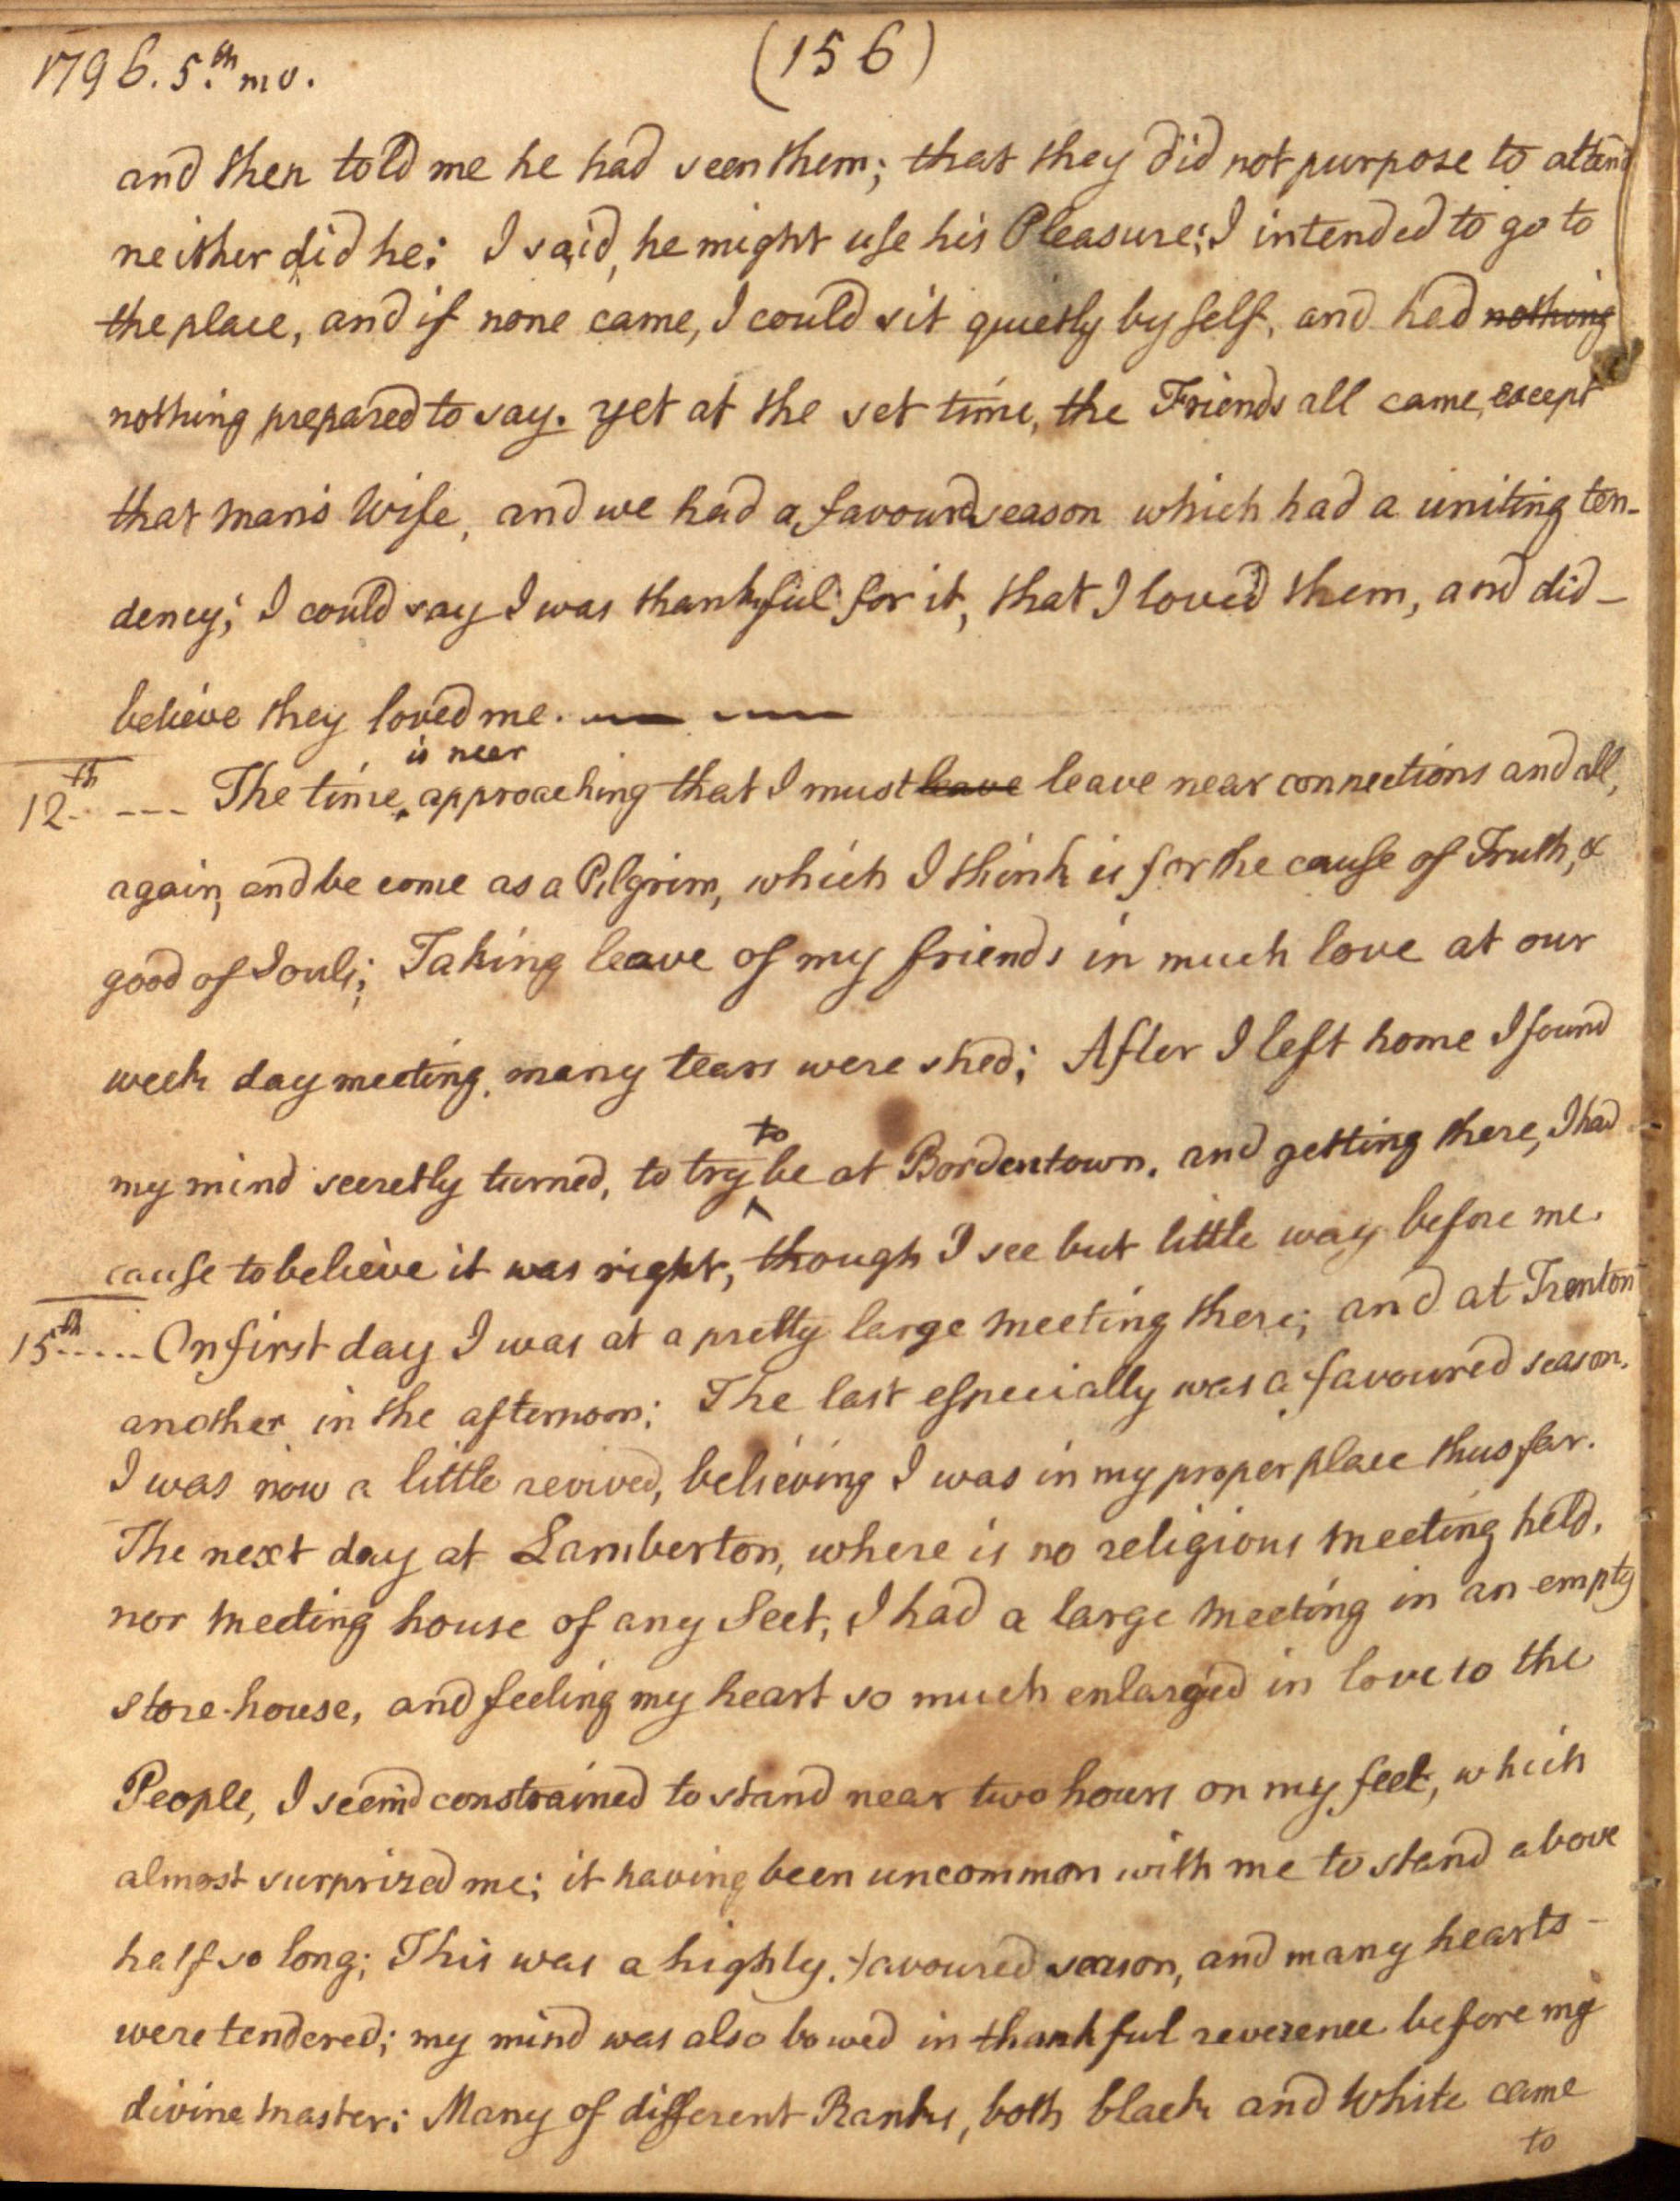 1796. 5.th mo.
(156)
and then told me he had seen them; that they did not purpose to attend
neither did he: I said, he might use his Pleasure; I intended to go to
the place, and if none came, I could sit quietly by self, and had nothing
nothing prepared to say. yet at the set time, the Friends all came, except
that man's Wife, and we had a favourd season which had a uniting ten-
dency; I could say I was thankful for it, that I loved them, and did-
believe they loved me.
is near
12th --- The time, approaching that I must leave leave near connections and all,
again, and be come as a Pilgrim, which I think is for the cause of Truth, &
good of Souls; Taking leave of my friends in much love at our
week day meeting, many tears were shed; After I left home I found
to
my mind secretly turned, to try be at Bordentown. and getting there, I had
cause to believe it was right, though I see but little way before me.
15th ..... On first day I was at a pretty large Meeting there; and at Trenton
another in the afternoon: The last especially was a favoured season.
I was now a little revived, believing I was in my proper place thus far.
The next day at Lamberton, where is no religious Meeting held,
nor Meeting house of any Sect, I had a large Meeting in an empty
store-house, and feeling my heart so much enlarg'd in love to the
People, I seem'd constrained to stand near two hours on my feet, which
almost surprized me; it having been uncommon with me to stand above
half so long; This was a highly favoured season, and many hearts-
were tendered; my mind was also bowed in thankful reverence before my
divine Master: Many of different Ranks, both black and White came
to